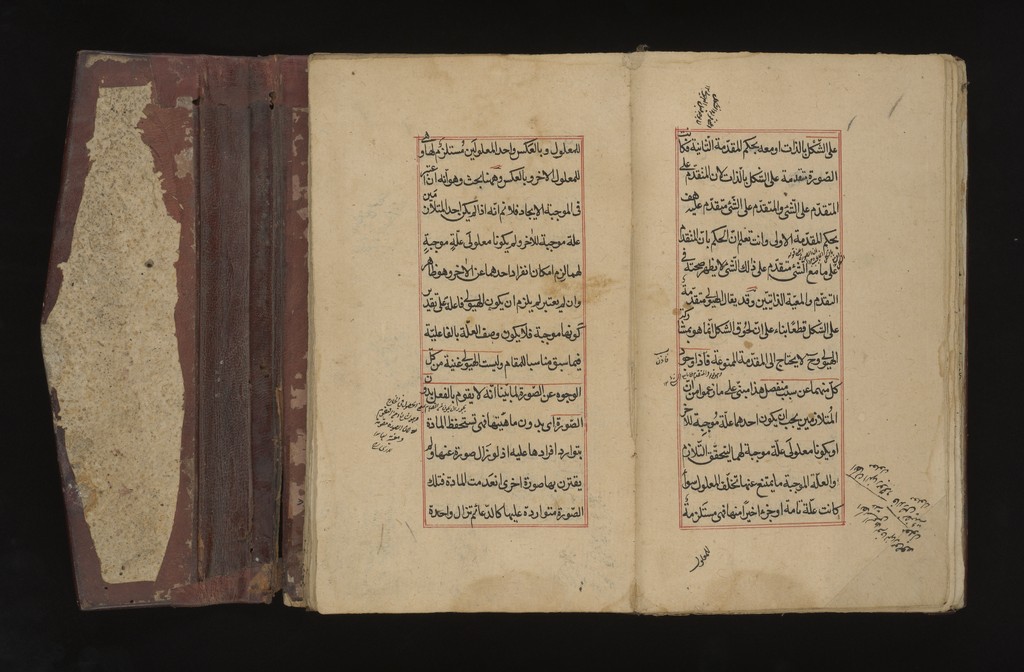 على الشكل بالذات او معه بحكم المقدمة الثانية فكانت
الصورة متقدمة على الشكل بالذات لان المتقدم على
المتقدم على الشئ والمتقدم على الشئ متقدم عليه هف
بحكم المقدمة الاولى وانت تعلم ان الحكم بان المتقدم
على ما مع الشئ متقدم على ذلك الشئ لا يظهر صحته في
التقدم والمعية الذاتيين وقد يقال الهيولى متقدمة
على الشكل قطعا بناء على ان لحوق الشكل انما هو بمشاركة
الهيولى وح لا يحتاج الى المقدمة الممنوعة فاذا وجود
كل منهما عن سبب منفصل هذا مبنى على ما زعموا من ان
المتلازمين يجب ان يكون احدهما علة موجبة للآخر
او يكونا معلولى علة موجبة لهما ليتحقق التلازم
والعلة الموجبة ما يمتنع عنها تخلف المعلول سواء
كانت علة تامة او جزء اخيرا منها فهى مستلزمة
للمعلول
للمعلول وبالعكس واحد المعلولين مستلزم لها وهى
للمعلول الاخر وبالعكس وههنا بحث وهو انه ان اعتبر
فى الموجبة الايجاد فلا نم انه اذا لم يكن احد المتلازمين
علة موجبة للآخر ولم يكونا معلولى علة موجبة
لهما لزم امكان انفراد احدهما عن الاخر وهو ظاهر
وان لم يعتبر لم يلزم ان يكون الهيولى فاعلة على تقدير
كونها موجبة فلا يكون وصف العلة بالفاعلية
فيما سبق مناسبا للمقام وليست الهيولى غنية من كل
الوجوه عن الصورة لما بينا انه لا يقوم بالفعل بدون
الصورة اى بدون ماهيتها فهى تستحفظ المادة
بتوارد افرادها عليه اذ لو زال صورة عنها ولم
يقترن بها صورة اخرى انعدمت المادة فتلك
الصورة متواردة عليها كالدعائم تزال واحدة